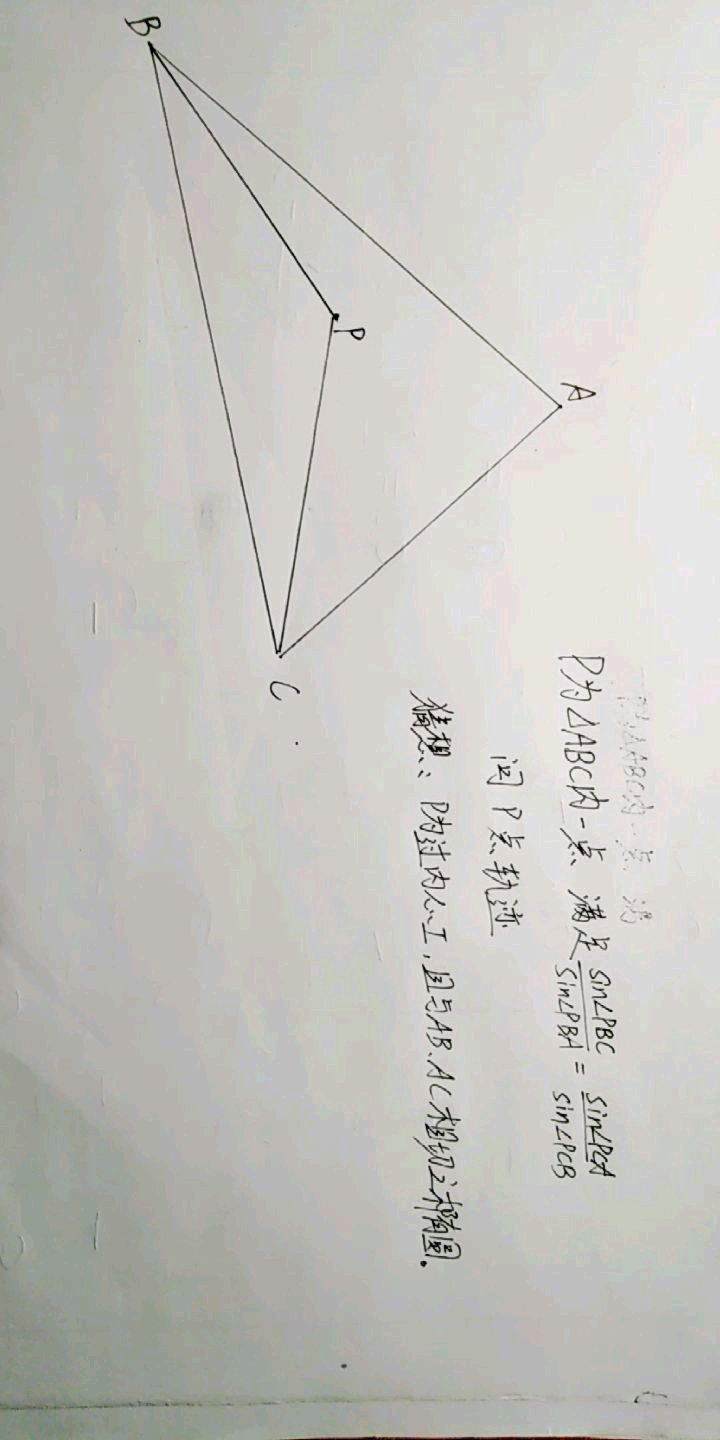 P为△ABC内一点 满足 sin∠PBC/sin∠PBA = sin∠PCA/sin∠PCB
问P点轨迹
猜想：P为过内心I，且与AB、AC相切之椭圆.
A
B
P
C